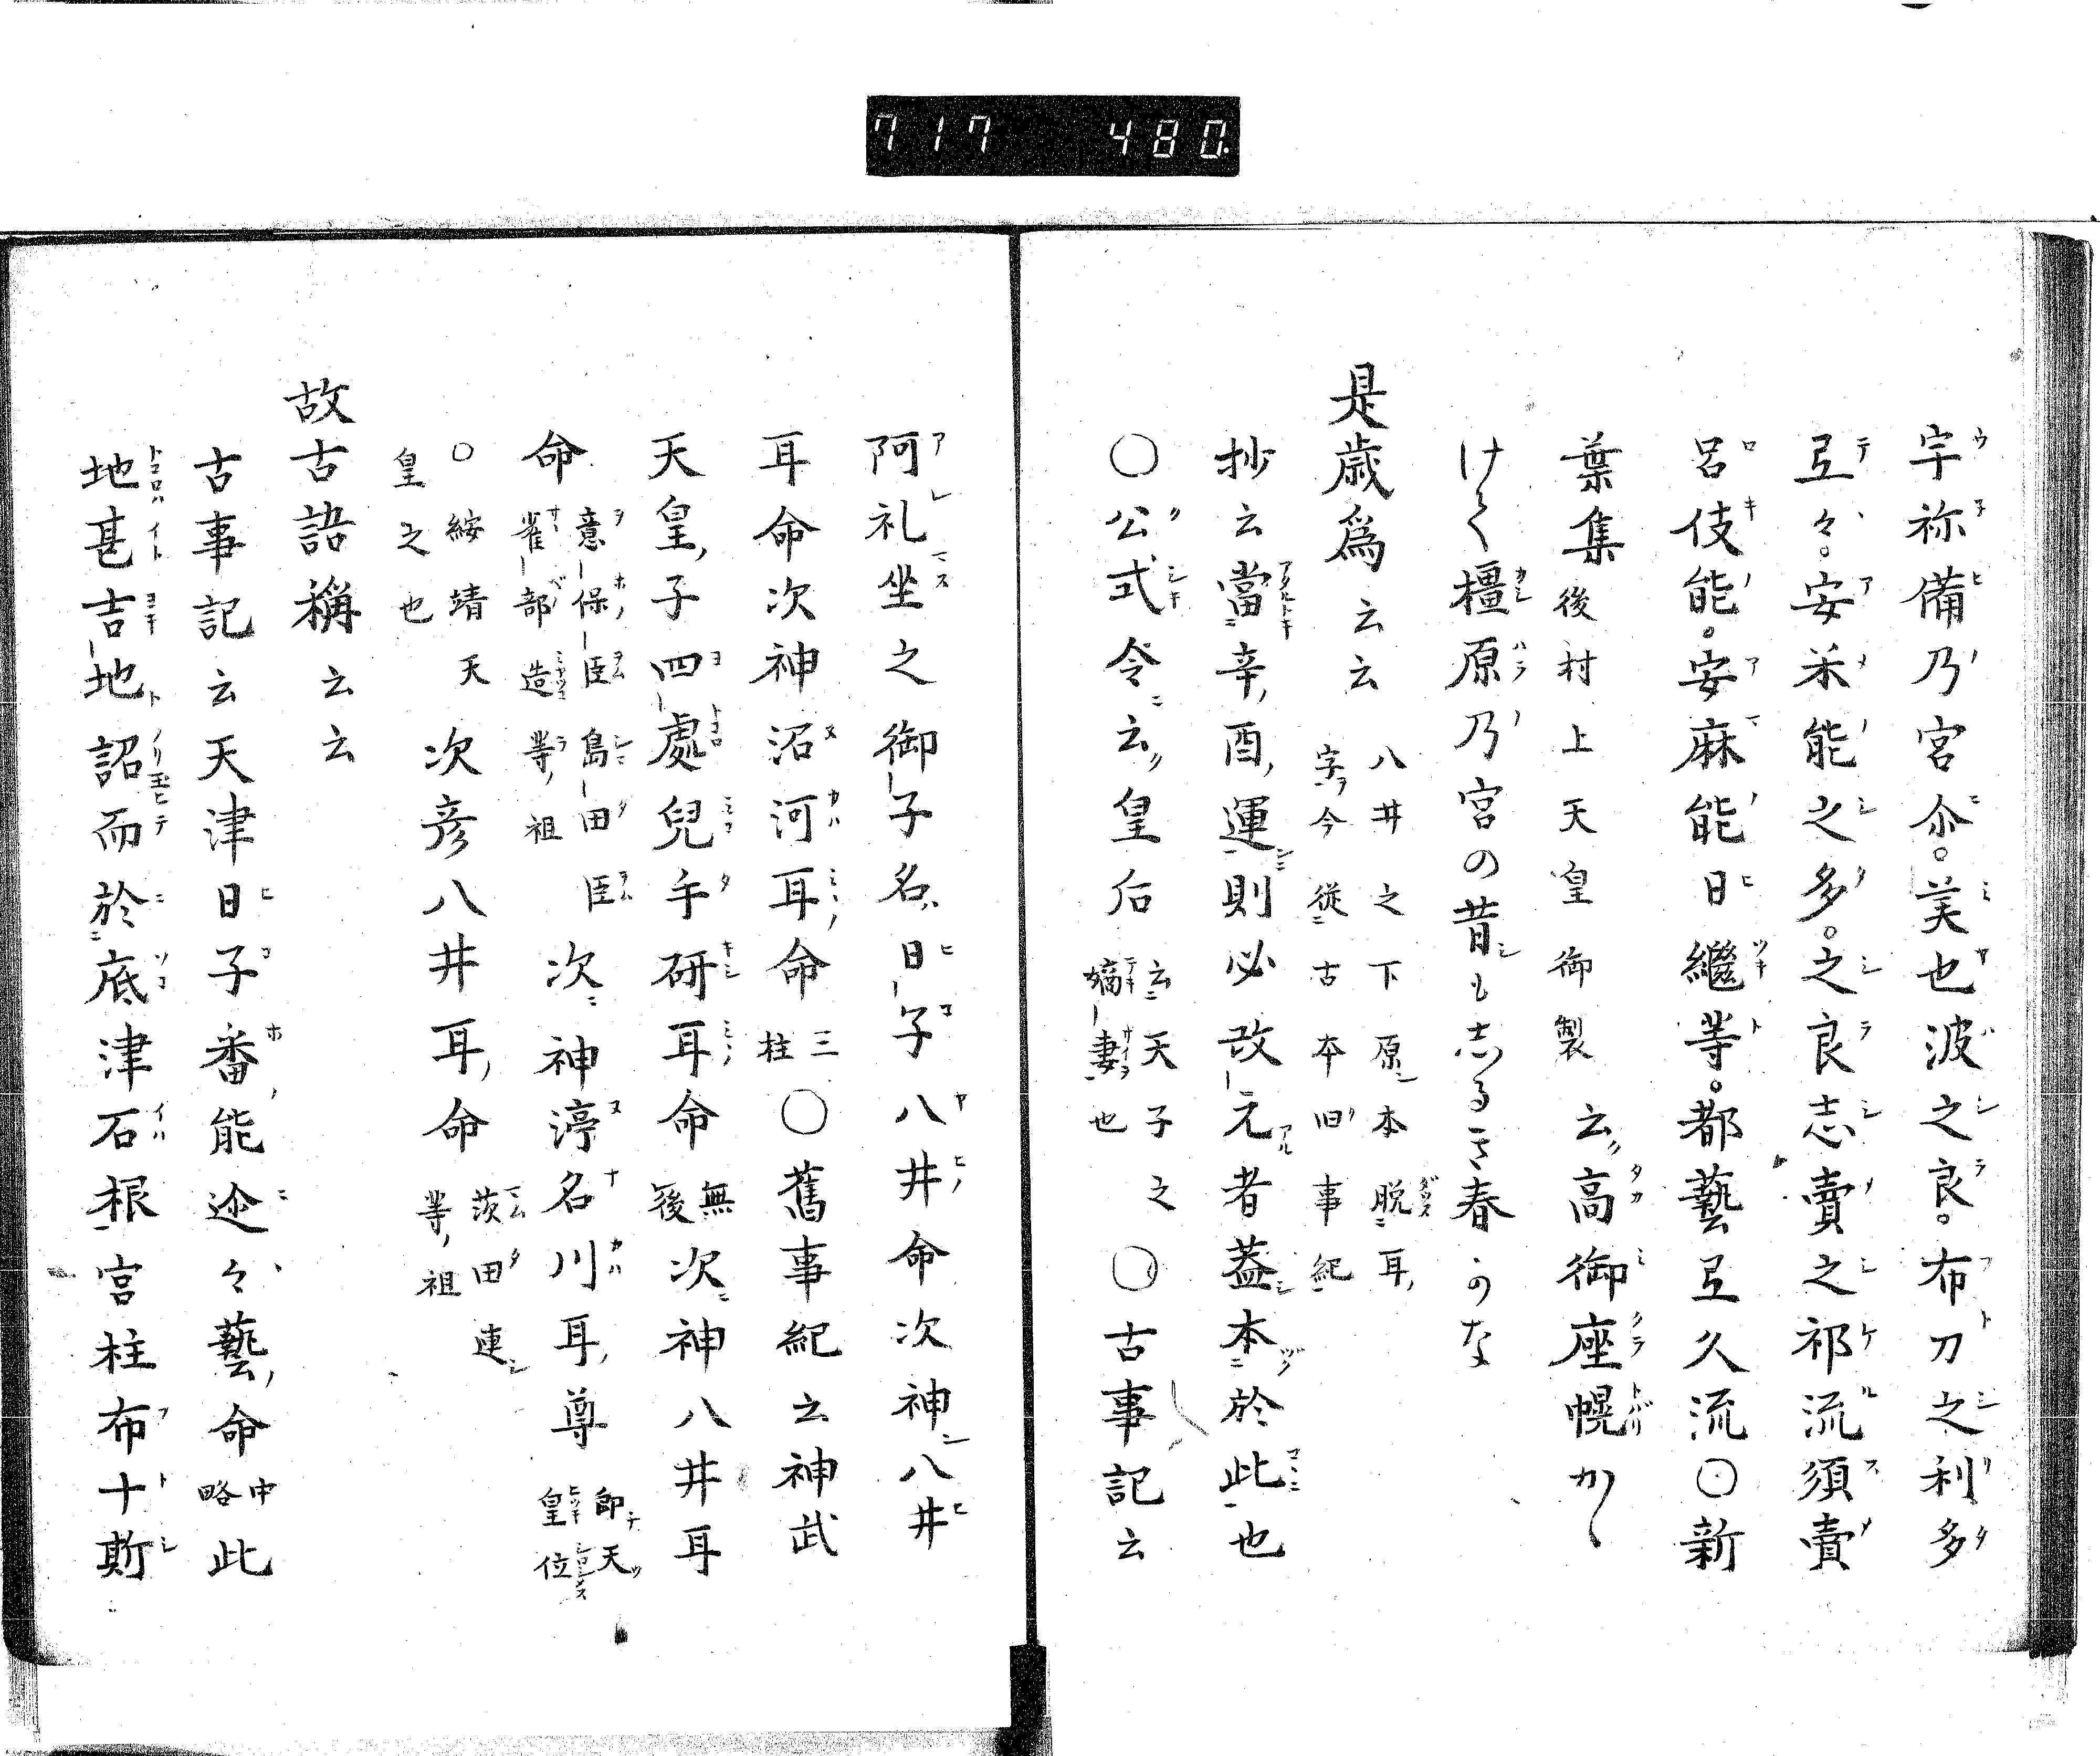 717 480
宇祢備乃宮尒。美也波之良。布刀之利多
弖々。安米能之多。之良志賣之祁流須賣
呂伎能。安麻能日繼等。都藝弖久流○新
葉集後村上天皇御製云高御座幌かゝ
けて橿原乃宮の昔も志るき春かな
是歳爲云云八井之下原本脱耳
字今從古本旧事紀
抄云當辛酉運則必改元者蓋本於此也
○公式令云皇后云天子之
嫡妻也○古事記云
阿礼坐之御子名日子八井命次神八井
耳命次神沼河耳命三
柱○舊事紀云神武
天皇子四處兒手研耳命無
後次神八井耳
命意保臣島田臣
雀部造等祖次神渟名川耳尊即天
皇位
○綏靖天
皇之也次彦八井耳命茨田連
等祖
故古語稱云云
古事記云天津日子番能迩々藝命中
略此
地甚吉地詔而於底津石根宮柱布十斯